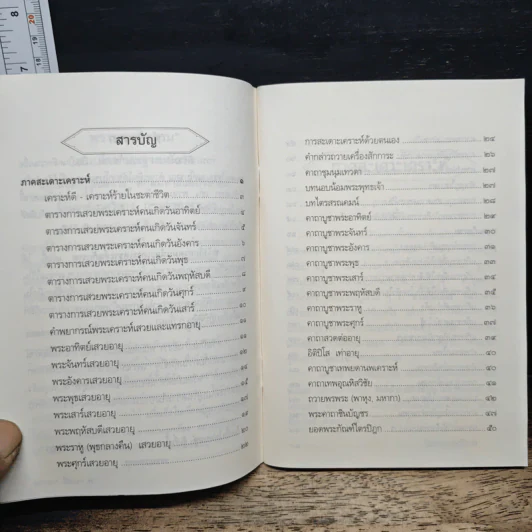 สารบัญ
ภาคสะเดาะเคราะห์ ๑
เคราะห์ดี - เคราะห์ร้ายในชะตาชีวิต ๓
ตารางการเสวยพระเคราะห์คนเกิดวันอาทิตย์ ๔
ตารางการเสวยพระเคราะห์คนเกิดวันจันทร์ ๕
ตารางการเสวยพระเคราะห์คนเกิดวันอังคาร ๖
ตารางการเสวยพระเคราะห์คนเกิดวันพุธ ๗
ตารางการเสวยพระเคราะห์คนเกิดวันพฤหัสบดี ๘
ตารางการเสวยพระเคราะห์คนเกิดวันศุกร์
ตารางการเสวยพระเคราะห์คนเกิดวันเสาร์
คำพยากรณ์พระเคราะห์เสวยและแทรกอายุ
พระอาทิตย์เสวยอายุ
พระจันทร์เสวยอายุ
พระอังคารเสวยอายุ
พระพุธเสวยอายุ
พระเสาร์เสวยอายุ
พระพฤหัสบดีเสวยอายุ
พระราหู (พุธกลางคืน) เสวยอายุ
พระศุกร์เสวยอายุ
การสะเดาะเคราะห์ด้วยตนเอง ๒๔
คำกล่าวถวายเครื่องสักการะ ๒๖
คาถาชุมนุมเทวดา ๒๗
บทนอบน้อมพระพุทธเจ้า ๒๗
บทไตรสรณคมน์ ๒๘
คาถาบูชาพระอาทิตย์ ๒๙
คาถาบูชาพระจันทร์ ๓๐
คาถาบูชาพระอังคาร ๓๑
คาถาบูชาพระพุธ ๓๓
คาถาบูชาพระเสาร์ ๓๔
คาถาบูชาพระพฤหัสบดี ๓๕
คาถาบูชาพระราหู ๓๖
คาถาบูชาพระศุกร์ ๓๗
คาถาสวดต่ออายุ ๓๙
อิติปิโส เท่าอายุ ๔๐
คาถาบูชาเทพยดานพเคราะห์ ๔๐
คาถาเทพอุณหิสวิชัย ๔๑
ถวายพรพระ (พาหุง, มหากา) ๔๒
พระคาถาชินบัญชร ๔๗
ยอดพระกัณฑ์ไตรปิฎก ๕๐